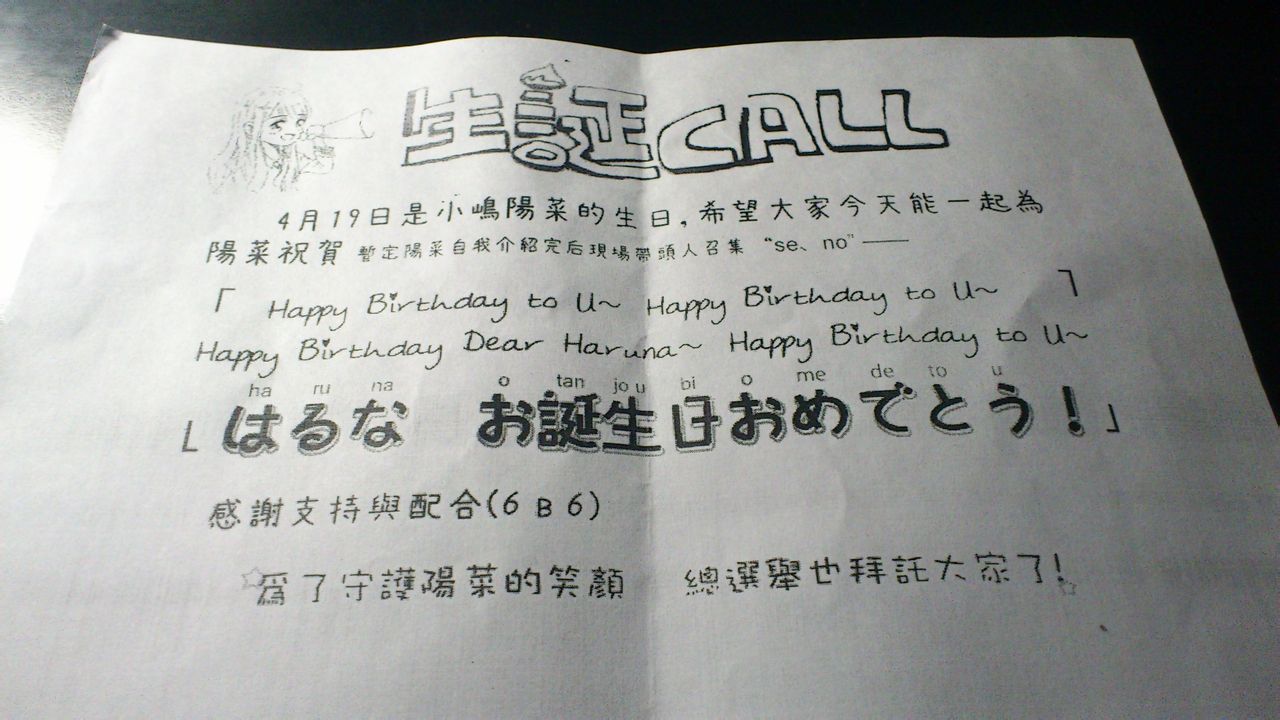 生誕CALL
4月19日是小嶋陽菜的生日,希望大家今天能一起為
陽菜祝賀 暫定陽菜自我介紹完后現場帶頭人召集 “se、no”——
「 Happy Birthday to U~ Happy Birthday to U~ 」
Happy Birthday Dear Haruna~ Happy Birthday to U~
ha ru na o tan jou bi o me de to u
「はるな お誕生日おめでとう！」
感謝支持與配合(6 B 6)
☆為了守護陽菜的笑顏 總選舉也拜託大家了!☆